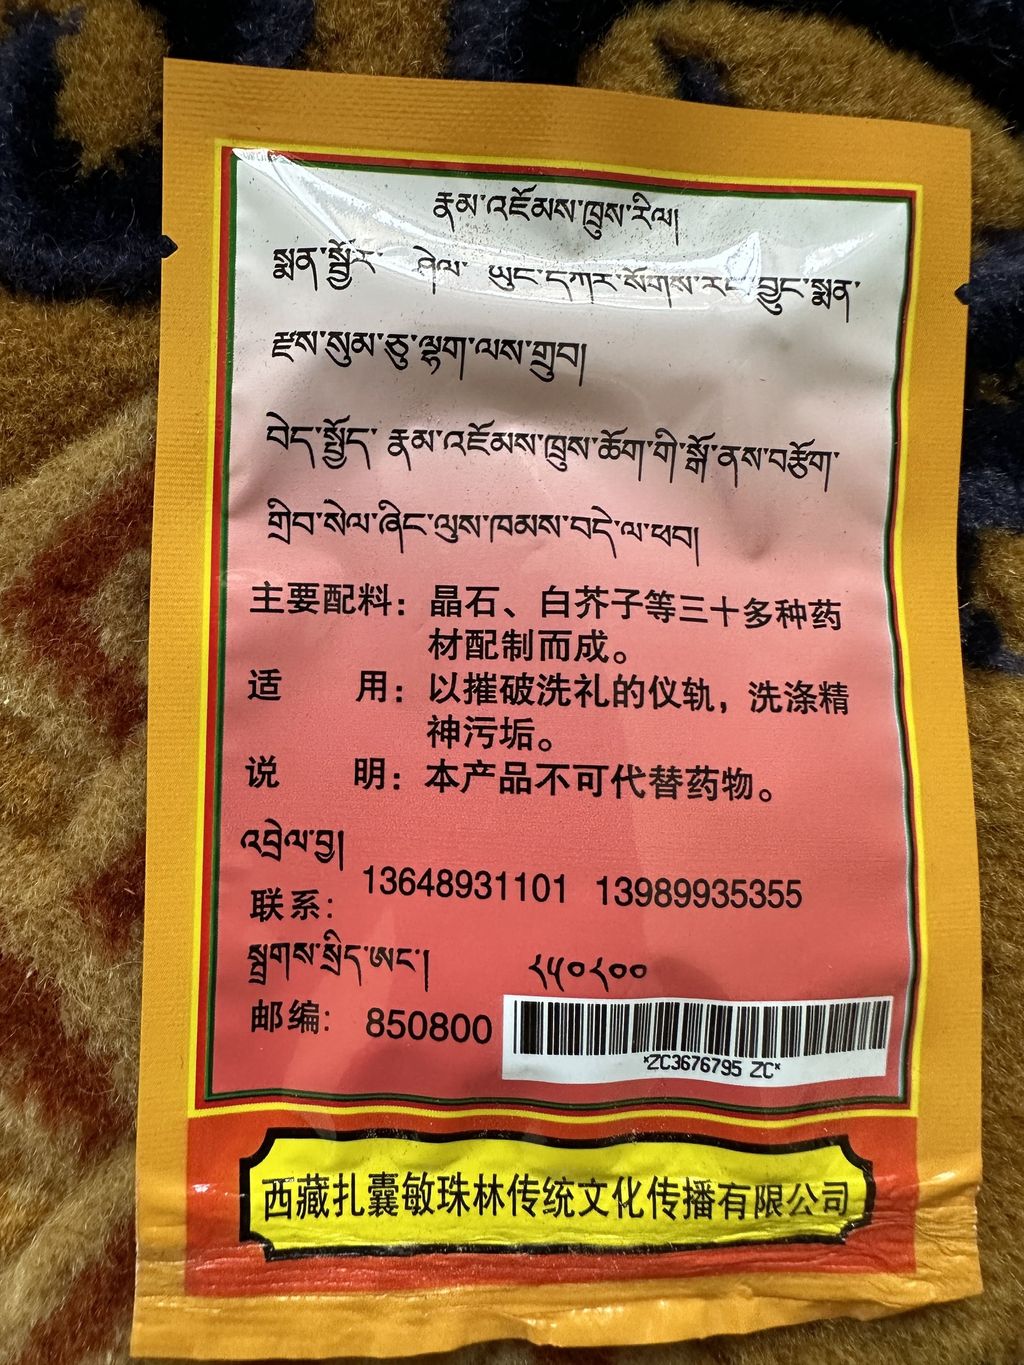 རྣམ་འཇོམས་ཁྲུས་རིལ།
སྨན་སྦྱོར་ ཤེལ་ ཡུང་དཀར་སོགས་རང་བྱུང་སྨན་
རྫས་སུམ་ཅུ་ལྷག་ལས་གྲུབ།
བེད་སྤྱོད་ རྣམ་འཇོམས་ཁྲུས་ཆོག་གི་སྒོ་ནས་བརྩོག་
གྲིབ་སེལ་ཞིང་ལུས་ཁམས་བདེ་ལ་ཕབ།
主要配料：晶石、白芥子等三十多种药
材配制而成。
适 用：以摧破洗礼的仪轨，洗涤精
神污垢。
说 明：本产品不可代替药物。
འབྲེལ་བྱ།
13648931101 13989935355
联系：
སྦྲགས་སྲིད་ཨང་།
༨༥༠༨༠༠
邮编：850800
*ZC3676795 ZC*
西藏扎囊敏珠林传统文化传播有限公司